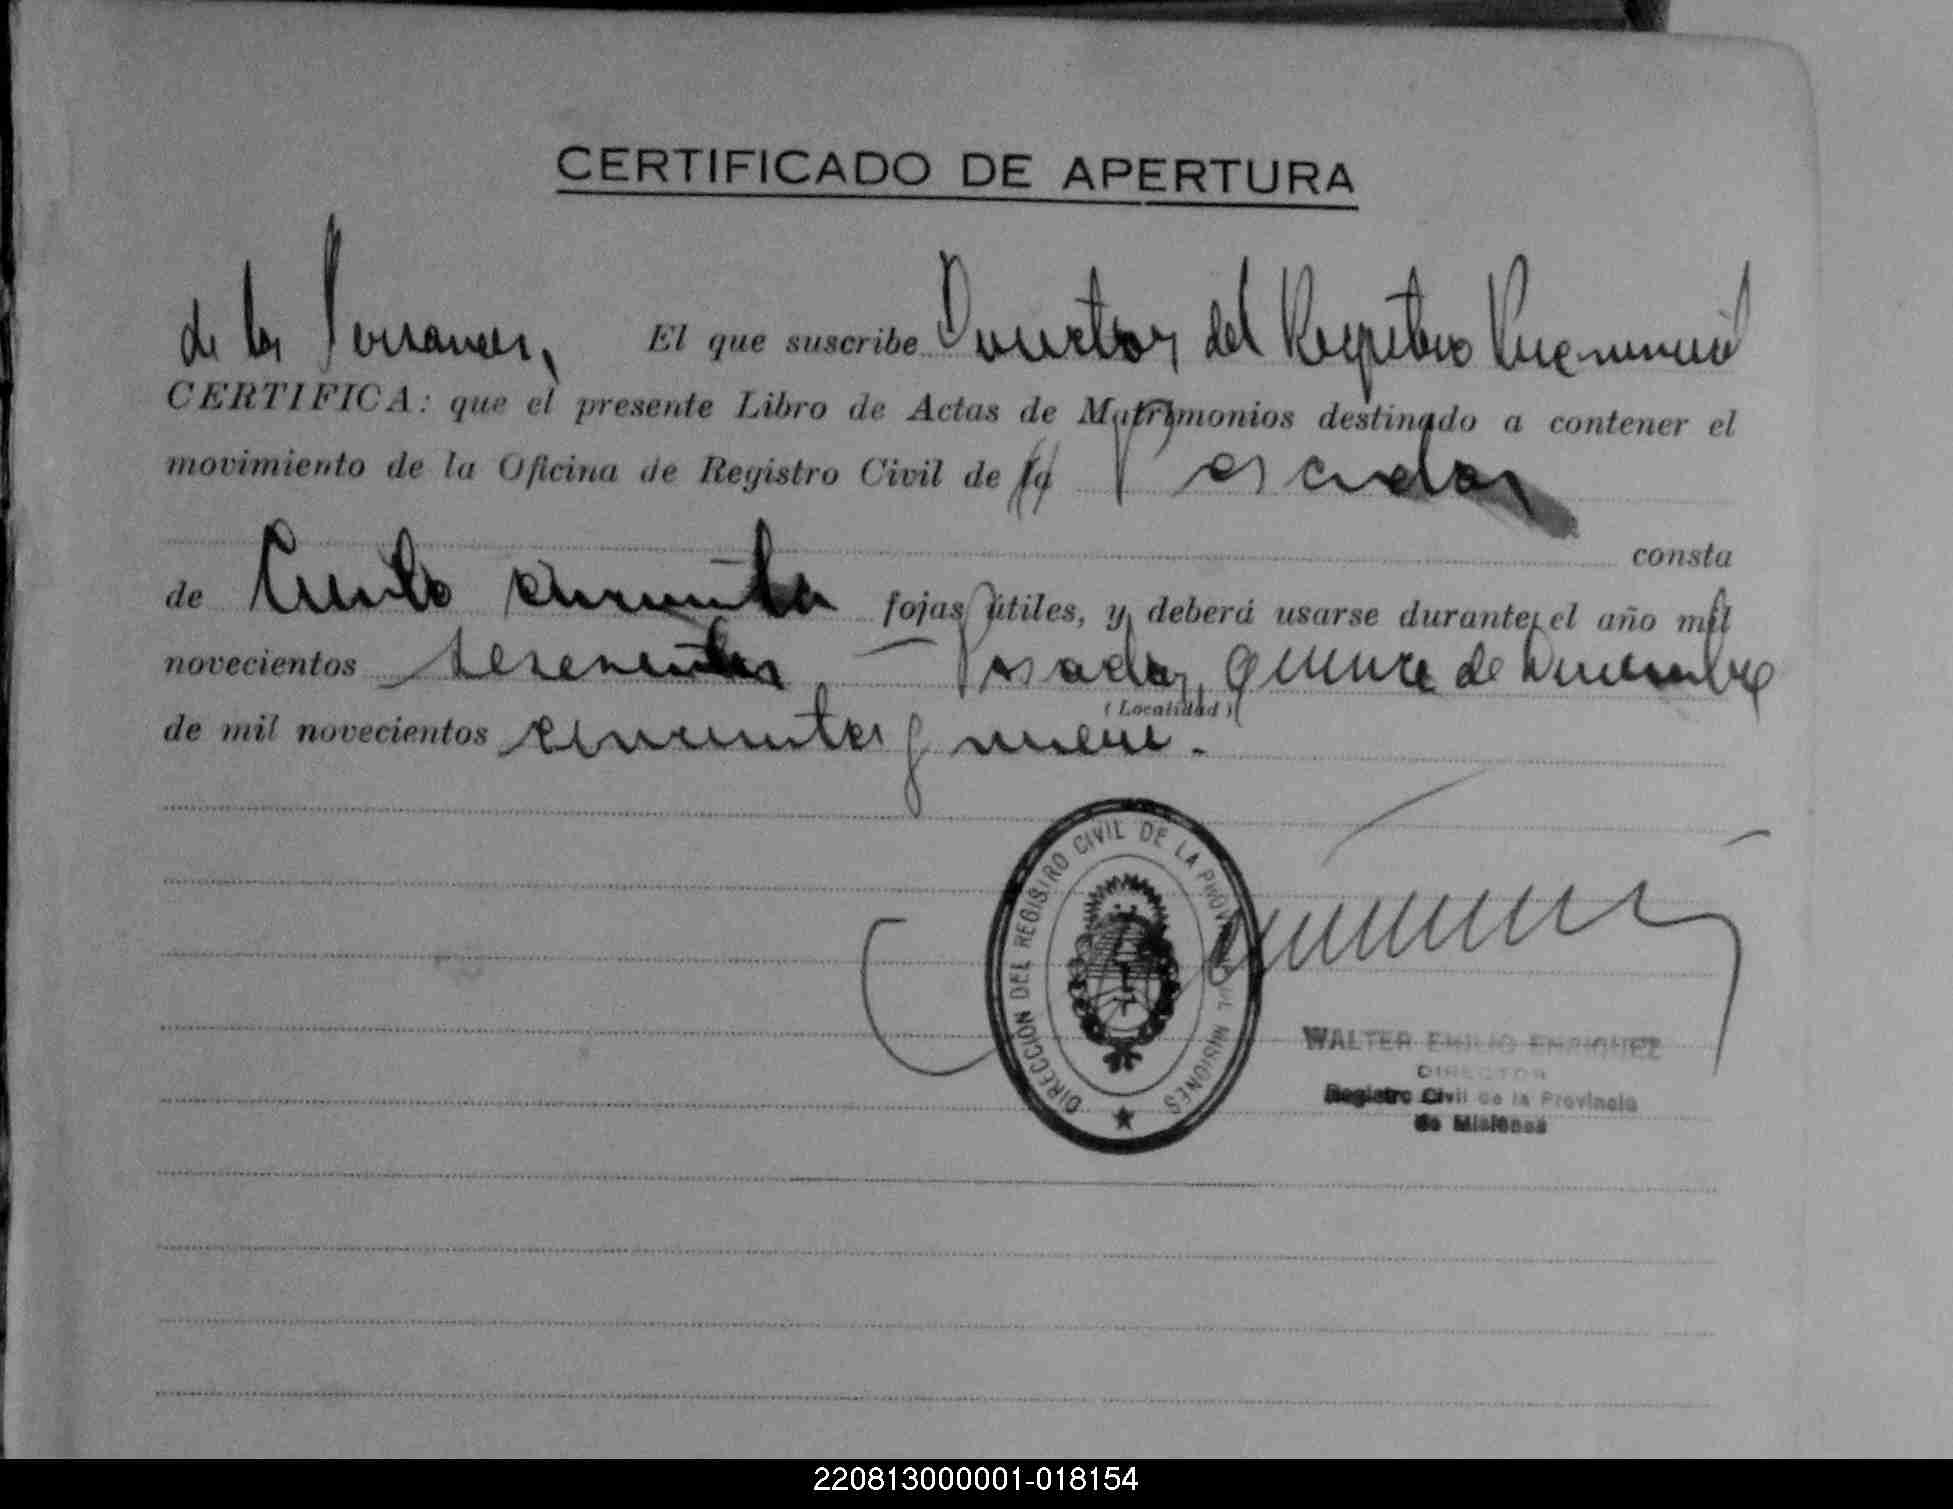 CERTIFICADO DE APERTURA
de las Personas, El que suscribe Director del Registro Provincial
CERTIFICA: que el presente Libro de Actas de Matrimonios destinado a contener el
movimiento de la Oficina de Registro Civil de la Posadas
consta
de Ciento cincuenta fojas útiles, y deberá usarse durante el año mil
novecientos sesenta — Posadas, quince de Diciembre
(Localidad)
de mil novecientos cincuenta y nueve.
DIRECCION DEL REGISTRO CIVIL DE LA PROVINCIA DE MISIONES
WALTER EMILIO ENRIQUEZ
DIRECTOR
Registro Civil de la Provincia
de Misiones
220813000001-018154